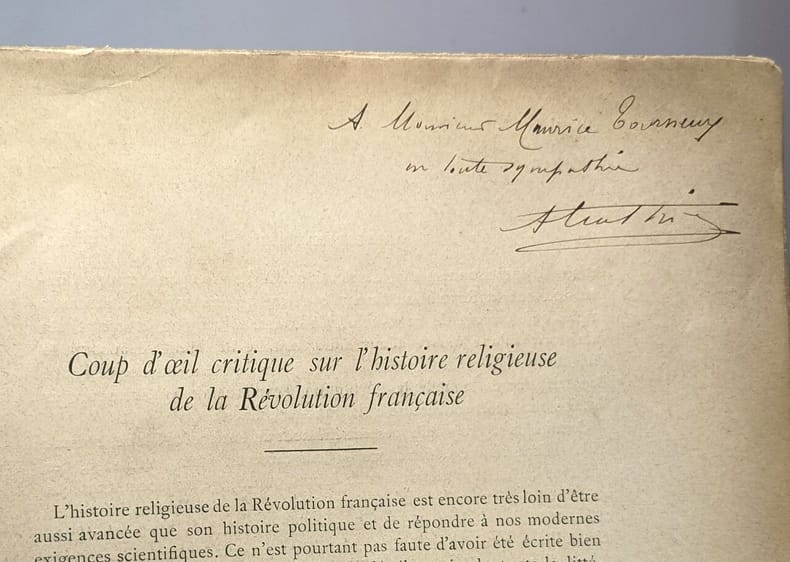 A Monsieur Maurice Tourneux
en toute sympathie
AMathiez
Coup d'œil critique sur l'histoire religieuse
de la Révolution française
L'histoire religieuse de la Révolution française est encore très loin d'être
aussi avancée que son histoire politique et de répondre à nos modernes
exigences scientifiques. Ce n'est pourtant pas faute d'avoir été écrite bien